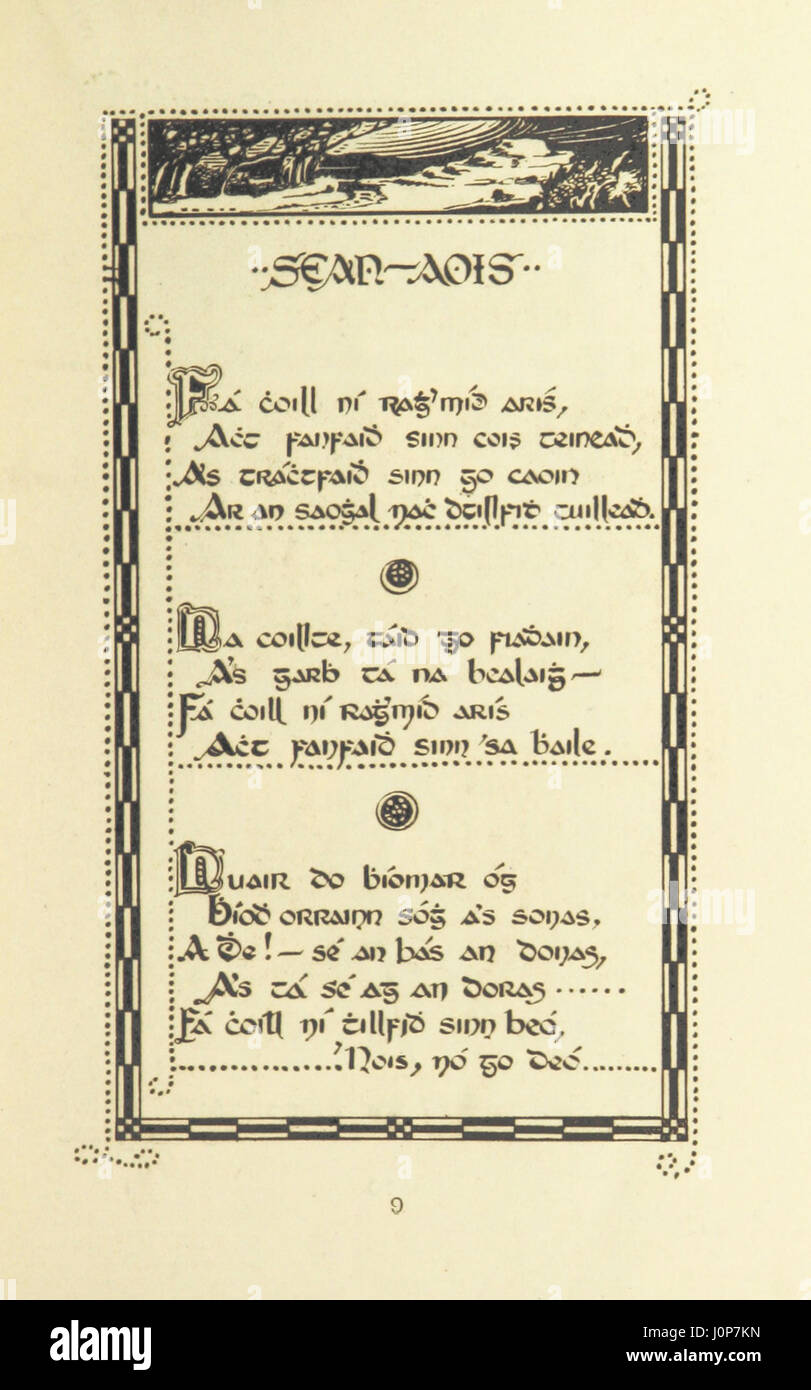 ··SEAN—AOIS··
Fá ċoill ní raġ'míd arís,
Aċt fanfaiḋ sinn cois teineaḋ,
A's tráċtfaiḋ sinn go caoin
Ar an saoġal naċ dtillfiḋ tuilleaḋ.
Na coillte, táid go fiaḋain,
A's garḃ tá na bealaiġ—
Fá ċoill ní raġ'míd arís
Aċt fanfaiḋ sinn 'sa ḃaile.
Nuair do ḃíomar óg
Ḃíoḋ orrainn sóġ a's sonas,
A Ḋe!—sé an bás an donas,
A's tá sé ag an doras······
Fá ċoill ní ṫillfid sinn beó,
'Nois, nó go deó.........
9
alamy
Image ID: J0P7KN
www.alamy.com